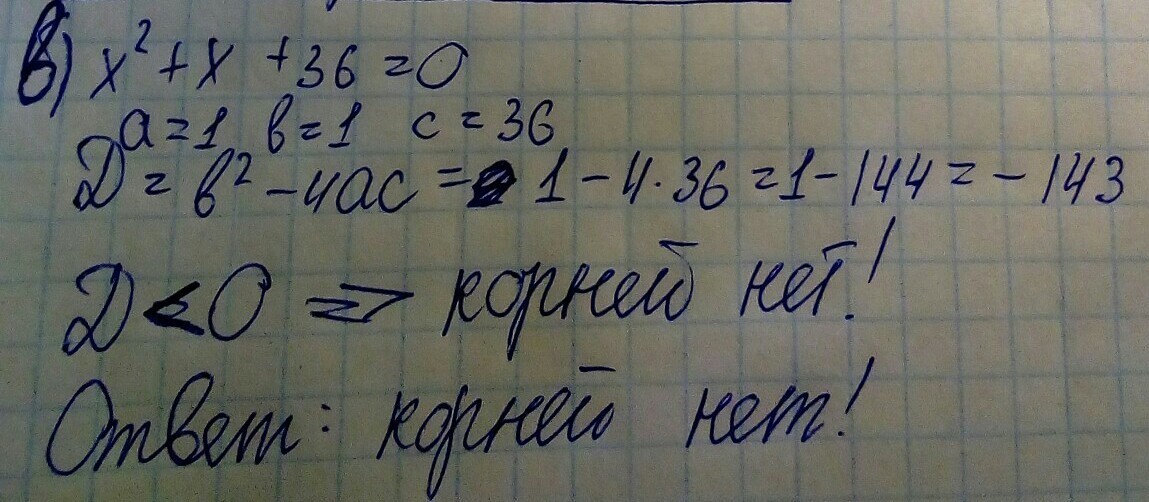 в) x² + x + 36 = 0
a = 1 в = 1 c = 36
Д = в² - 4ac = 1 - 4 · 36 = 1 - 144 = - 143
Д < 0 => корней нет!
Ответ: корней нет!